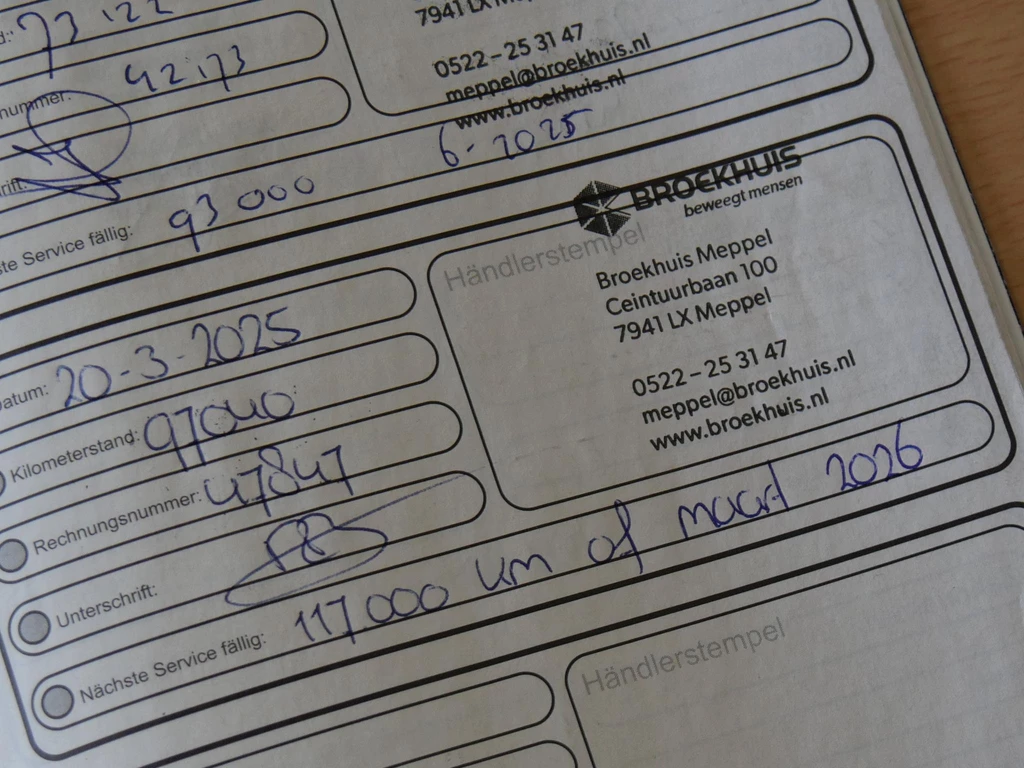 73.122
7941 LX Meppel
0522 – 25 31 47
meppel@broekhuis.nl
www.broekhuis.nl
nummer: 42173
rift:
ste Service fällig: 93000 6-2025
BROEKHUIS
beweegt mensen
Händlerstempel
Broekhuis Meppel
Ceintuurbaan 100
7941 LX Meppel
0522 – 25 31 47
meppel@broekhuis.nl
www.broekhuis.nl
Datum: 20-3-2025
Kilometerstand: 97040
Rechnungsnummer: 47847
Unterschrift:
Nächste Service fällig: 117.000 km of maart 2026
Händlerstempel